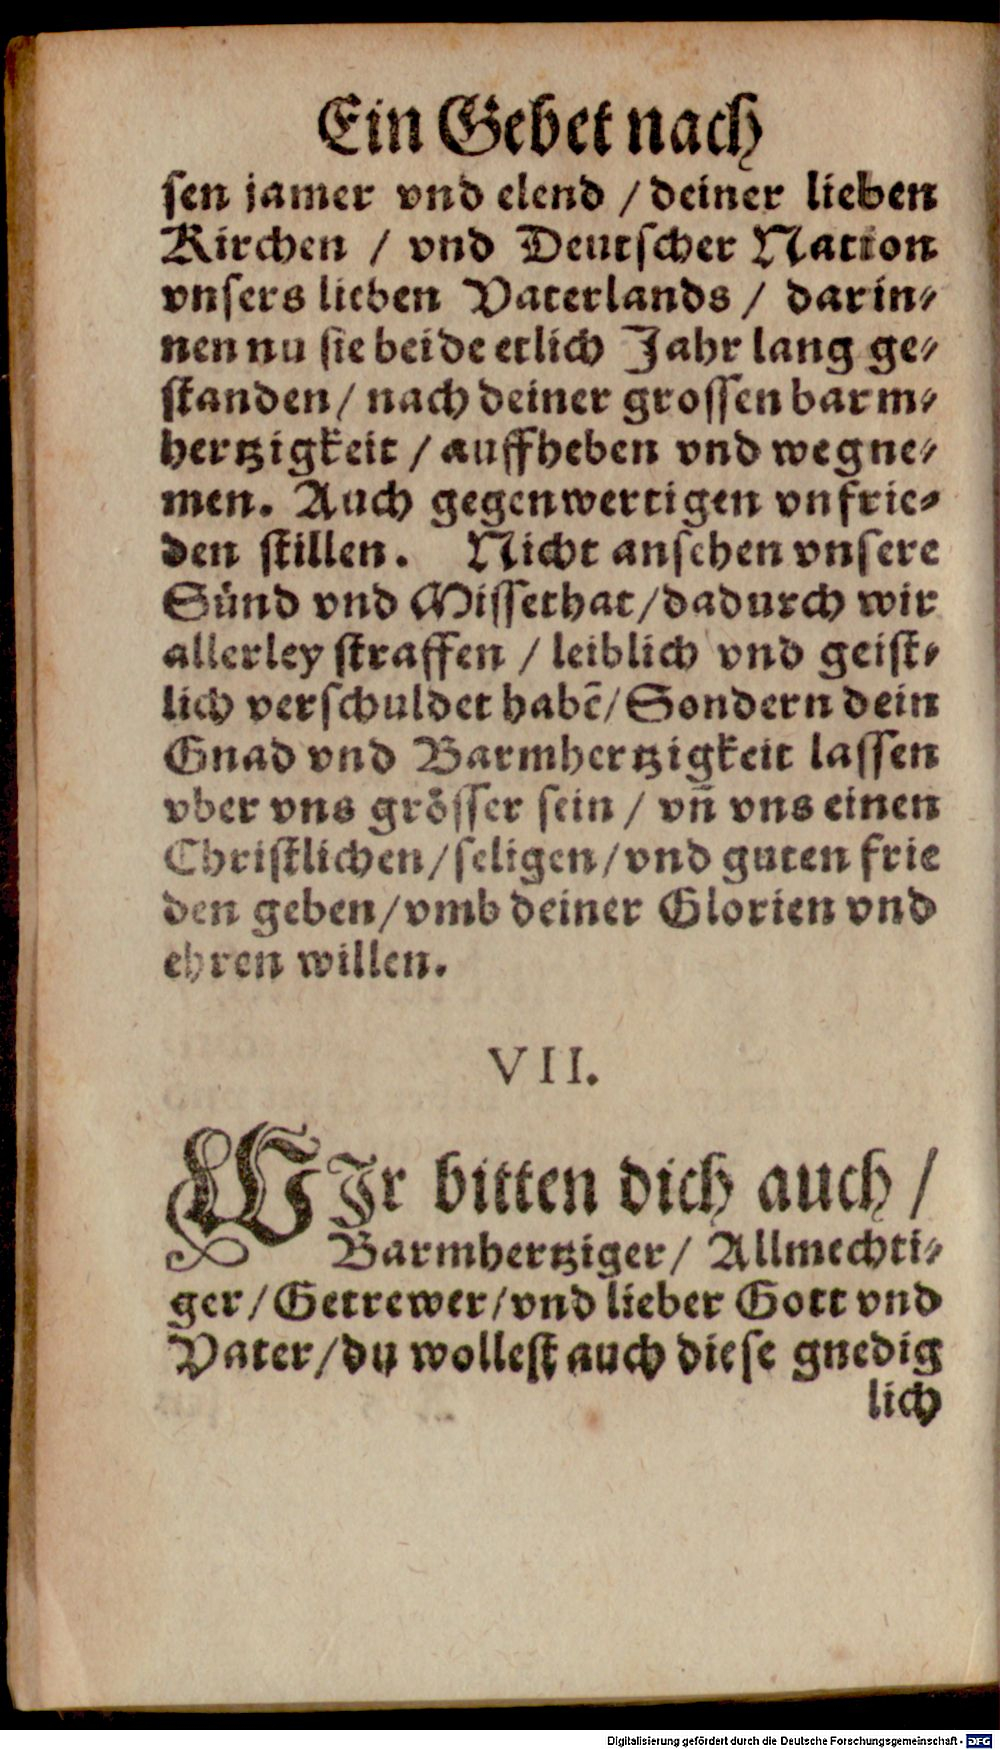 Ein Gebet nach
ſen jamer vnd elend / deiner lieben
Kirchen / vnd Deutſcher Nation
vnſers lieben Vaterlands / darin⸗
nen nu ſie beide etlich Jahr lang ge⸗
ſtanden / nach deiner groſſen barm⸗
hertzigkeit / auffheben vnd wegne⸗
men. Auch gegenwertigen vnfrie⸗
den ſtillen. Nicht anſehen vnſere
Sünd vnd Miſſethat / dadurch wir
allerley ſtraffen / leiblich vnd geiſt⸗
lich verſchuldet habē / Sondern dein
Gnad vnd Barmhertzigkeit laſſen
vber vns gröſſer ſein / vn̄ vns einen
Chriſtlichen / ſeligen / vnd guten frie
den geben / vmb deiner Glorien vnd
ehren willen.
VII.
WIr bitten dich auch /
Barmhertziger / Allmechti⸗
ger / Getrewer / vnd lieber Gott vnd
Vater / du wolleſt auch dieſe gnedig
lich
Digitalisierung gefördert durch die Deutsche Forschungsgemeinschaft - DFG